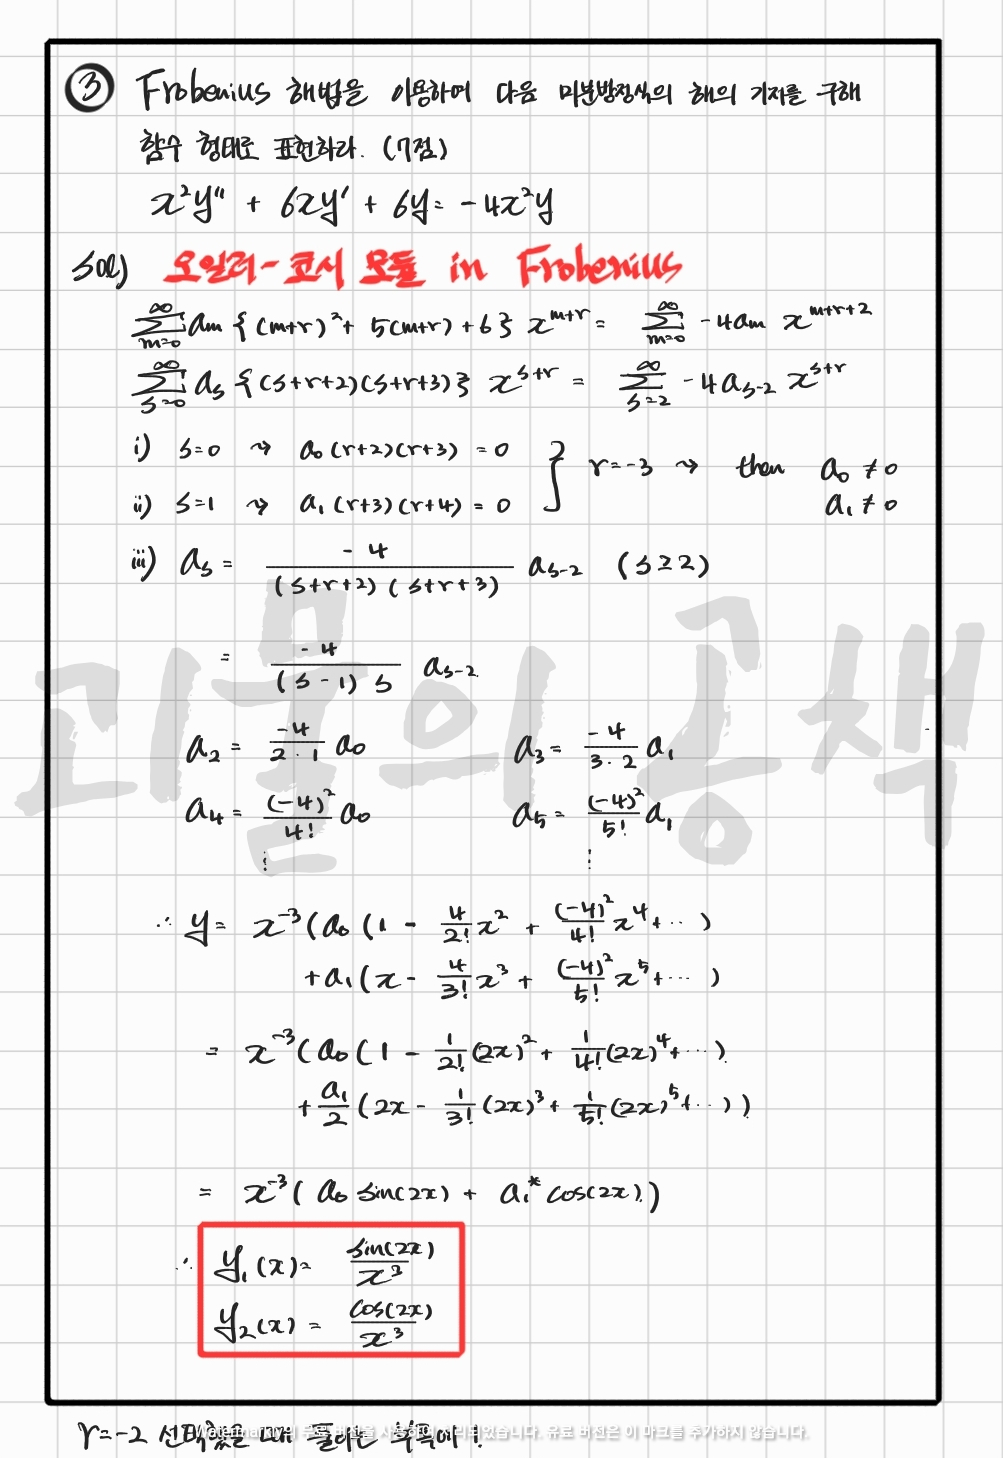 ③ Frobenius 해법을 이용하여 다음 미분방정식의 해의 기저를 구해
함수 형태로 표현하라. (7점)
x²y" + 6xy' + 6y = -4x²y
sol) 오일러-코시 모듈 in Frobenius
∑_{m=0}^{∞} a_m {(m+r)² + 5(m+r) + 6} x^{m+r} = ∑_{m=0}^{∞} -4a_m x^{m+r+2}
∑_{s=0}^{∞} a_s {(s+r+2)(s+r+3)} x^{s+r} = ∑_{s=2}^{∞} -4a_{s-2} x^{s+r}
i) s=0 ⇝ a₀(r+2)(r+3) = 0
ii) s=1 ⇝ a₁(r+3)(r+4) = 0 } r=-3 ⇝ then a₀ ≠ 0 a₁ ≠ 0
iii) a_s = -4 / (s+r+2)(s+r+3) a_{s-2} (s≥2)
= -4 / (s-1)s a_{s-2}
a₂ = -4 / 2·1 a₀ a₃ = -4 / 3·2 a₁
a₄ = (-4)² / 4! a₀ a₅ = (-4)² / 5! a₁
⋮ ⋮
∴ y = x⁻³(a₀(1 - 4/2! x² + (-4)²/4! x⁴ + ⋯)
+a₁(x - 4/3! x³ + (-4)²/5! x⁵ + ⋯)
= x⁻³(a₀(1 - 1/2! (2x)² + 1/4! (2x)⁴ + ⋯)
+ a₁/2 (2x - 1/3! (2x)³ + 1/5! (2x)⁵ + ⋯))
= x⁻³(a₀ sin(2x) + a₁* cos(2x))
∴ y₁(x) = sin(2x) / x³
y₂(x) = cos(2x) / x³
괴물의 공책
r=-2 선택했을 때 풀이는 부록에!
Watermarkly의 무료 버전을 사용하여 처리되었습니다. 유료 버전은 이 마크를 추가하지 않습니다.